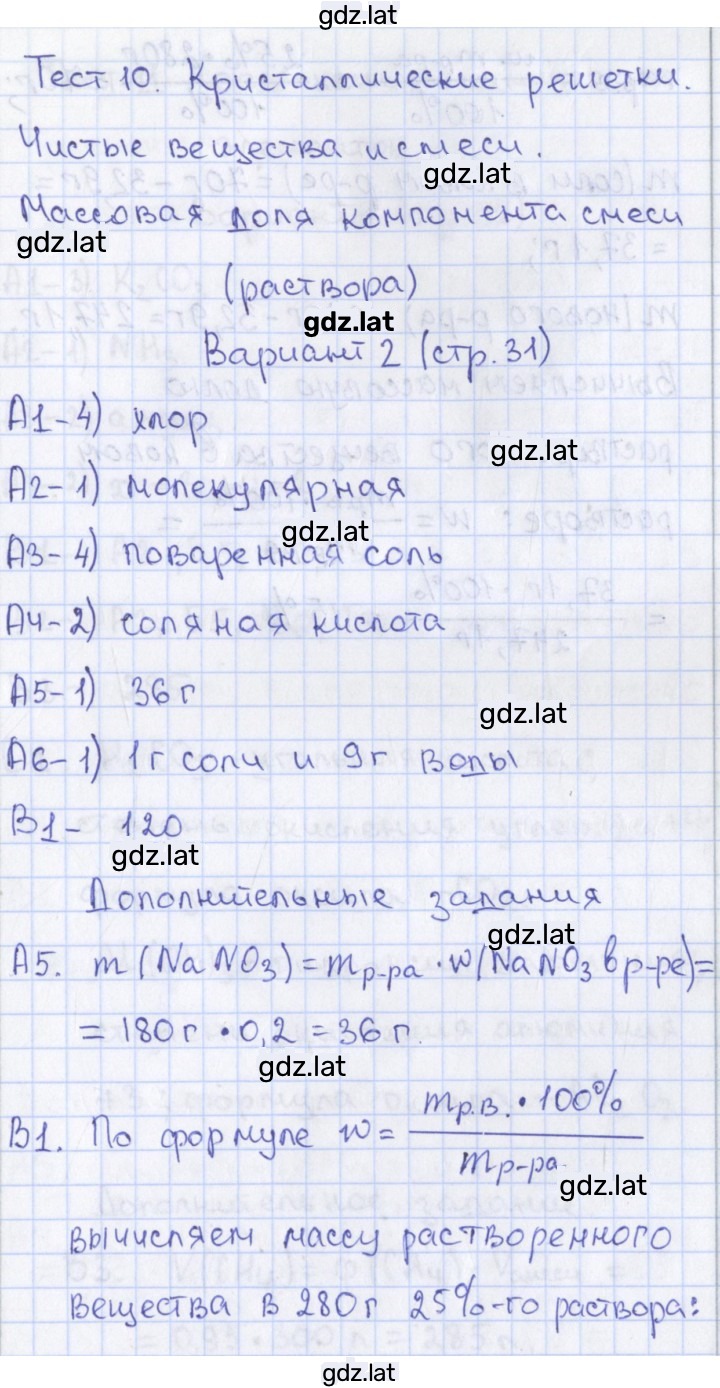 gdz.lat
Тест 10. Кристаллические решетки.
Чистые вещества и смеси.
gdz.lat
Массовая доля компонента смеси
gdz.lat
(раствора)
gdz.lat
Вариант 2 (стр. 31)
А1-4) хлор
gdz.lat
А2-1) молекулярная
gdz.lat
А3-4) поваренная соль
А4-2) соляная кислота
А5-1) 36 г
gdz.lat
А6-1) 1г соли и 9г воды
В1- 120
gdz.lat
Дополнительные задания
gdz.lat
А5. m(NaNO₃)=mр-ра·w(NaNO₃ в р-ре)=
=180г·0,2=36г.
gdz.lat
В1. По формуле w= mр.в.·100% / mр-ра
gdz.lat
вычисляем массу растворенного
вещества в 280г 25%-го раствора:
gdz.lat